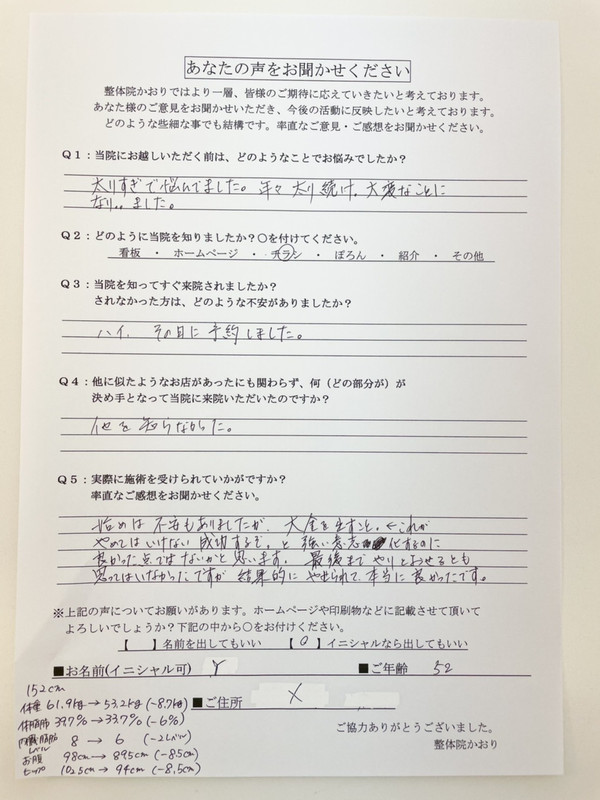 あなたの声をお聞かせください
整体院かおりではより一層、皆様のご期待に応えていきたいと考えております。
あなた様のご意見をお聞かせいただき、今後の活動に反映したいと考えております。
どのような些細な事でも結構です。率直なご意見・ご感想をお聞かせください。
Q1：当院にお越しいただく前は、どのようなことでお悩みでしたか？
太りすぎで悩んでました。年々太り続け、大変なことに
なりました。
Q2：どのように当院を知りましたか？〇を付けてください。
看板 ・ ホームページ ・ チラシ ・ ぽろん ・ 紹介 ・ その他
Q3：当院を知ってすぐ来院されましたか？
されなかった方は、どのような不安がありましたか？
ハイ、その日に予約しました。
Q4：他に似たようなお店があったにも関わらず、何（どの部分が）が
決め手となって当院に来院いただいたのですか？
他を知らなかった。
Q5：実際に施術を受けられていかがですか？
率直なご感想をお聞かせください。
始めは不安もありましたが、大金を出すこと。←これが
やめてはいけない成功するぞ。と強い意志 化するのに
良かった点ではないかと思います。最後までやりとおせるとも
思ってはいなかったですが結果的にやせられて本当に良かったです。
※上記の声についてお願いがあります。ホームページや印刷物などに記載させて頂いて
よろしいでしょうか？下記の中から〇をお付けください。
【 】名前を出してもいい 【 〇 】イニシャルなら出してもいい
■お名前(イニシャル可) Y ■ご年齢 52
152cm
体重 61.9kg→53.2kg(-8.7kg) ■ご住所 X
体脂肪 39.7%→33.7%(-6%)
内臓脂肪レベル 8→6 (-2レベル)
お腹 98cm→89.5cm(-8.5cm)
ヒップ 102.5cm→94cm(-8.5cm)
ご協力ありがとうございました。
整体院かおり